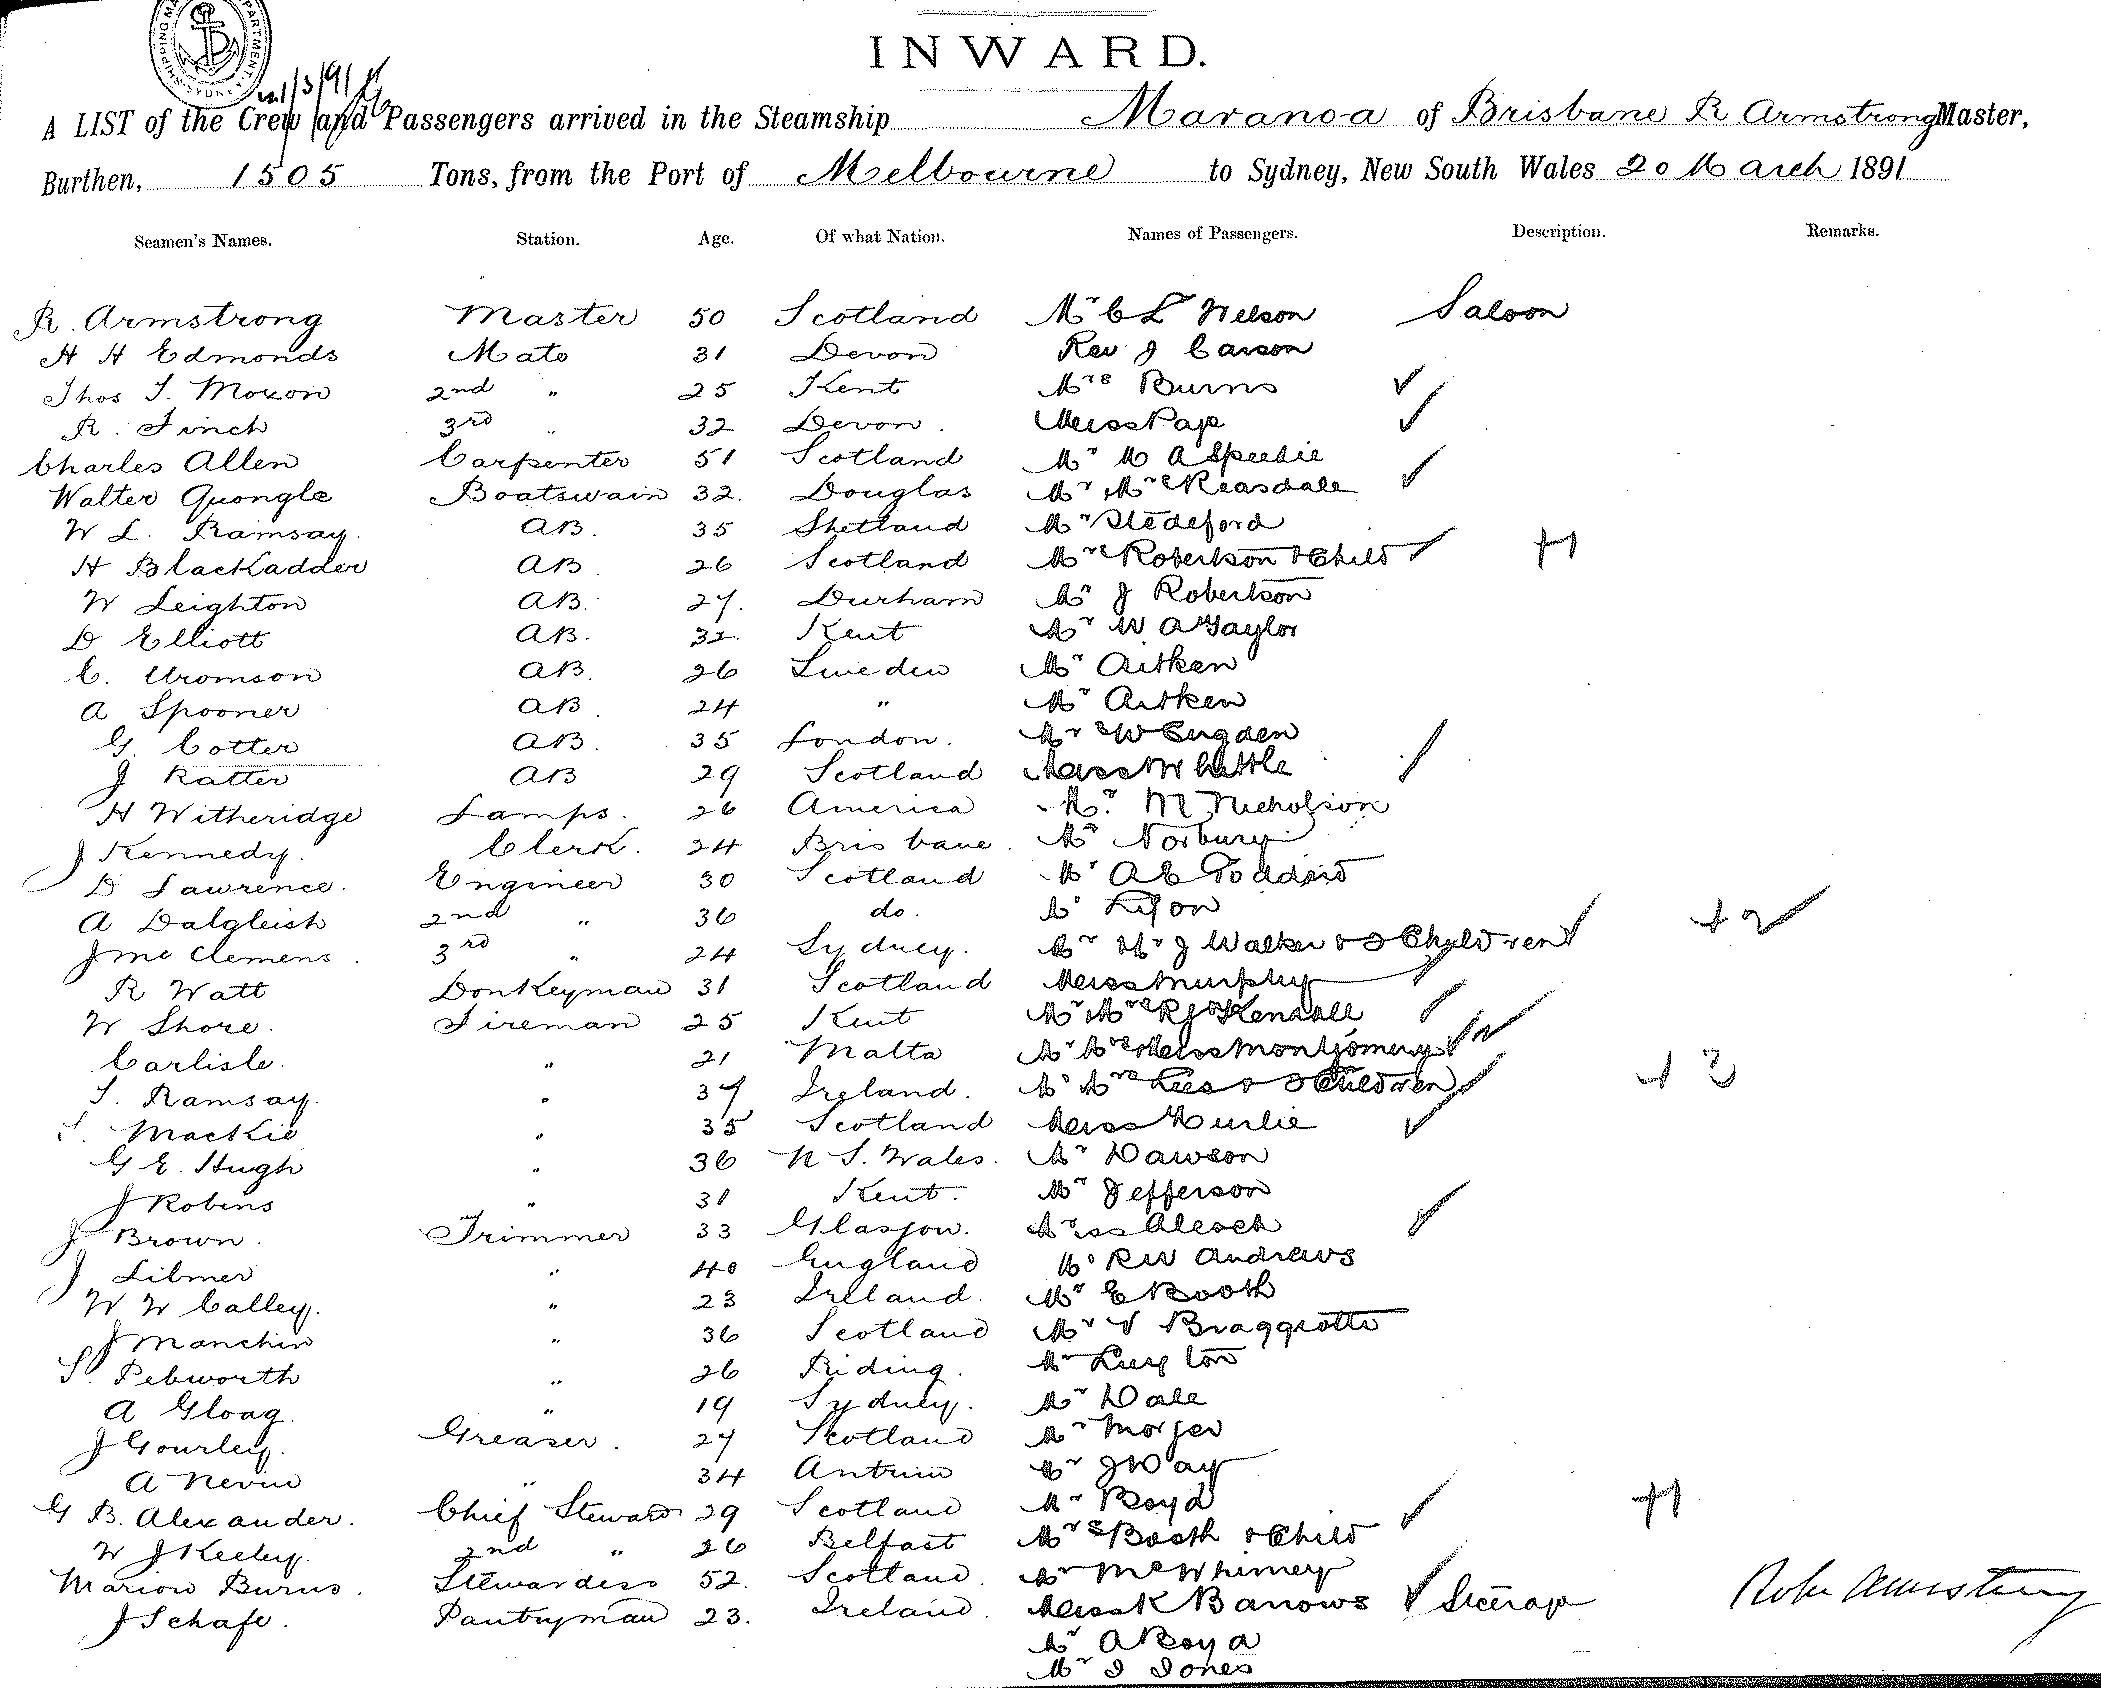 INWARD.
A LIST of the Crew and Passengers arrived in the Steamship Maranoa of Brisbane R Armstrong Master,
Burthen, 1505 Tons, from the Port of Melbourne to Sydney, New South Wales 20 March 1891
Seamen's Names. Station. Age. Of what Nation. Names of Passengers. Description. Remarks.
R. Armstrong Master 50 Scotland Mr C L Nelson Saloon
H H Edmonds Mate 31 Devon Rev J Carson
Thos T. Moxon 2nd " 25 Kent Mrs Burns
R. Finch 3rd " 32 Devon. Miss Pap
Charles Allen Carpenter 51 Scotland Mr M A Speedie
Walter Quongle Boatswain 32. Douglas Mr Mrs Reasdale
W L. Ramsay. AB. 35 Shetland Mr Stedeford
H Blackadder AB 26 Scotland Mrs Robertson & Child +1
W Leighton AB. 27. Durham Mr J Robertson
D Elliott AB. 32. Kent Mr W A Taylor
C. Uromson AB. 26 Sweden Mr Aitken
A Spooner AB. 24 " Mr Aitken
G. Cotter AB. 35 London. Mr W Sugden
J Ratter AB 29 Scotland Miss Whittle
H Witheridge Lamps. 26 America Mr. M Nicholson
J Kennedy. Clerk. 24 Brisbane. Mr Norbury
D Lawrence. Engineer 30 Scotland Mr A E Goddard
A Dalgleish 2nd " 36 do. Mr
J Mc Clemens. 3rd " 24 Sydney. Mr Mrs J Walker & 3 Children +2
R Watt Donkeyman 31 Scotland Miss Murphy
W Shore. Fireman 25 Kent Mr Mrs Kendall
Carlisle. " 21 Malta Mr Mrs Miss Montgomery
T. Ramsay. " 37 Ireland. Mr Mrs Lees & 3 Children +2
S. Mackie " 35 Scotland Miss
G E. Hugh " 36 N S. Wales. Mr Dawson
J Robins " 31 Kent. Mr Jefferson
J Brown. Trimmer 33 Glasgow.
J Libmer " 40 England Mr R W Andrews
W W Calley. " 23 Ireland. Mr E Booth
J Manchin " 36 Scotland Mr V Braggrotte
S. Pebworth " 26 Riding. Mr Luxton
A Gloag. " 19 Sydney. Mr Dale
J Gourley. Greaser. 27 Scotland Mr
A Nevin " 34 Antrim Mr J Way
G B. Alexander. Chief Steward 29 Scotland Mr Boyd
W J Keeley. 2nd " 26 Belfast Mrs Booth & Child +1
Marion Burns. Stewardess 52. Scotland. Mr McWhinney
J Schafe. Pantryman 23. Ireland. Miss K Barrows Steerage
Mr A Boyd
Mr J Jones
Robt Armstrong